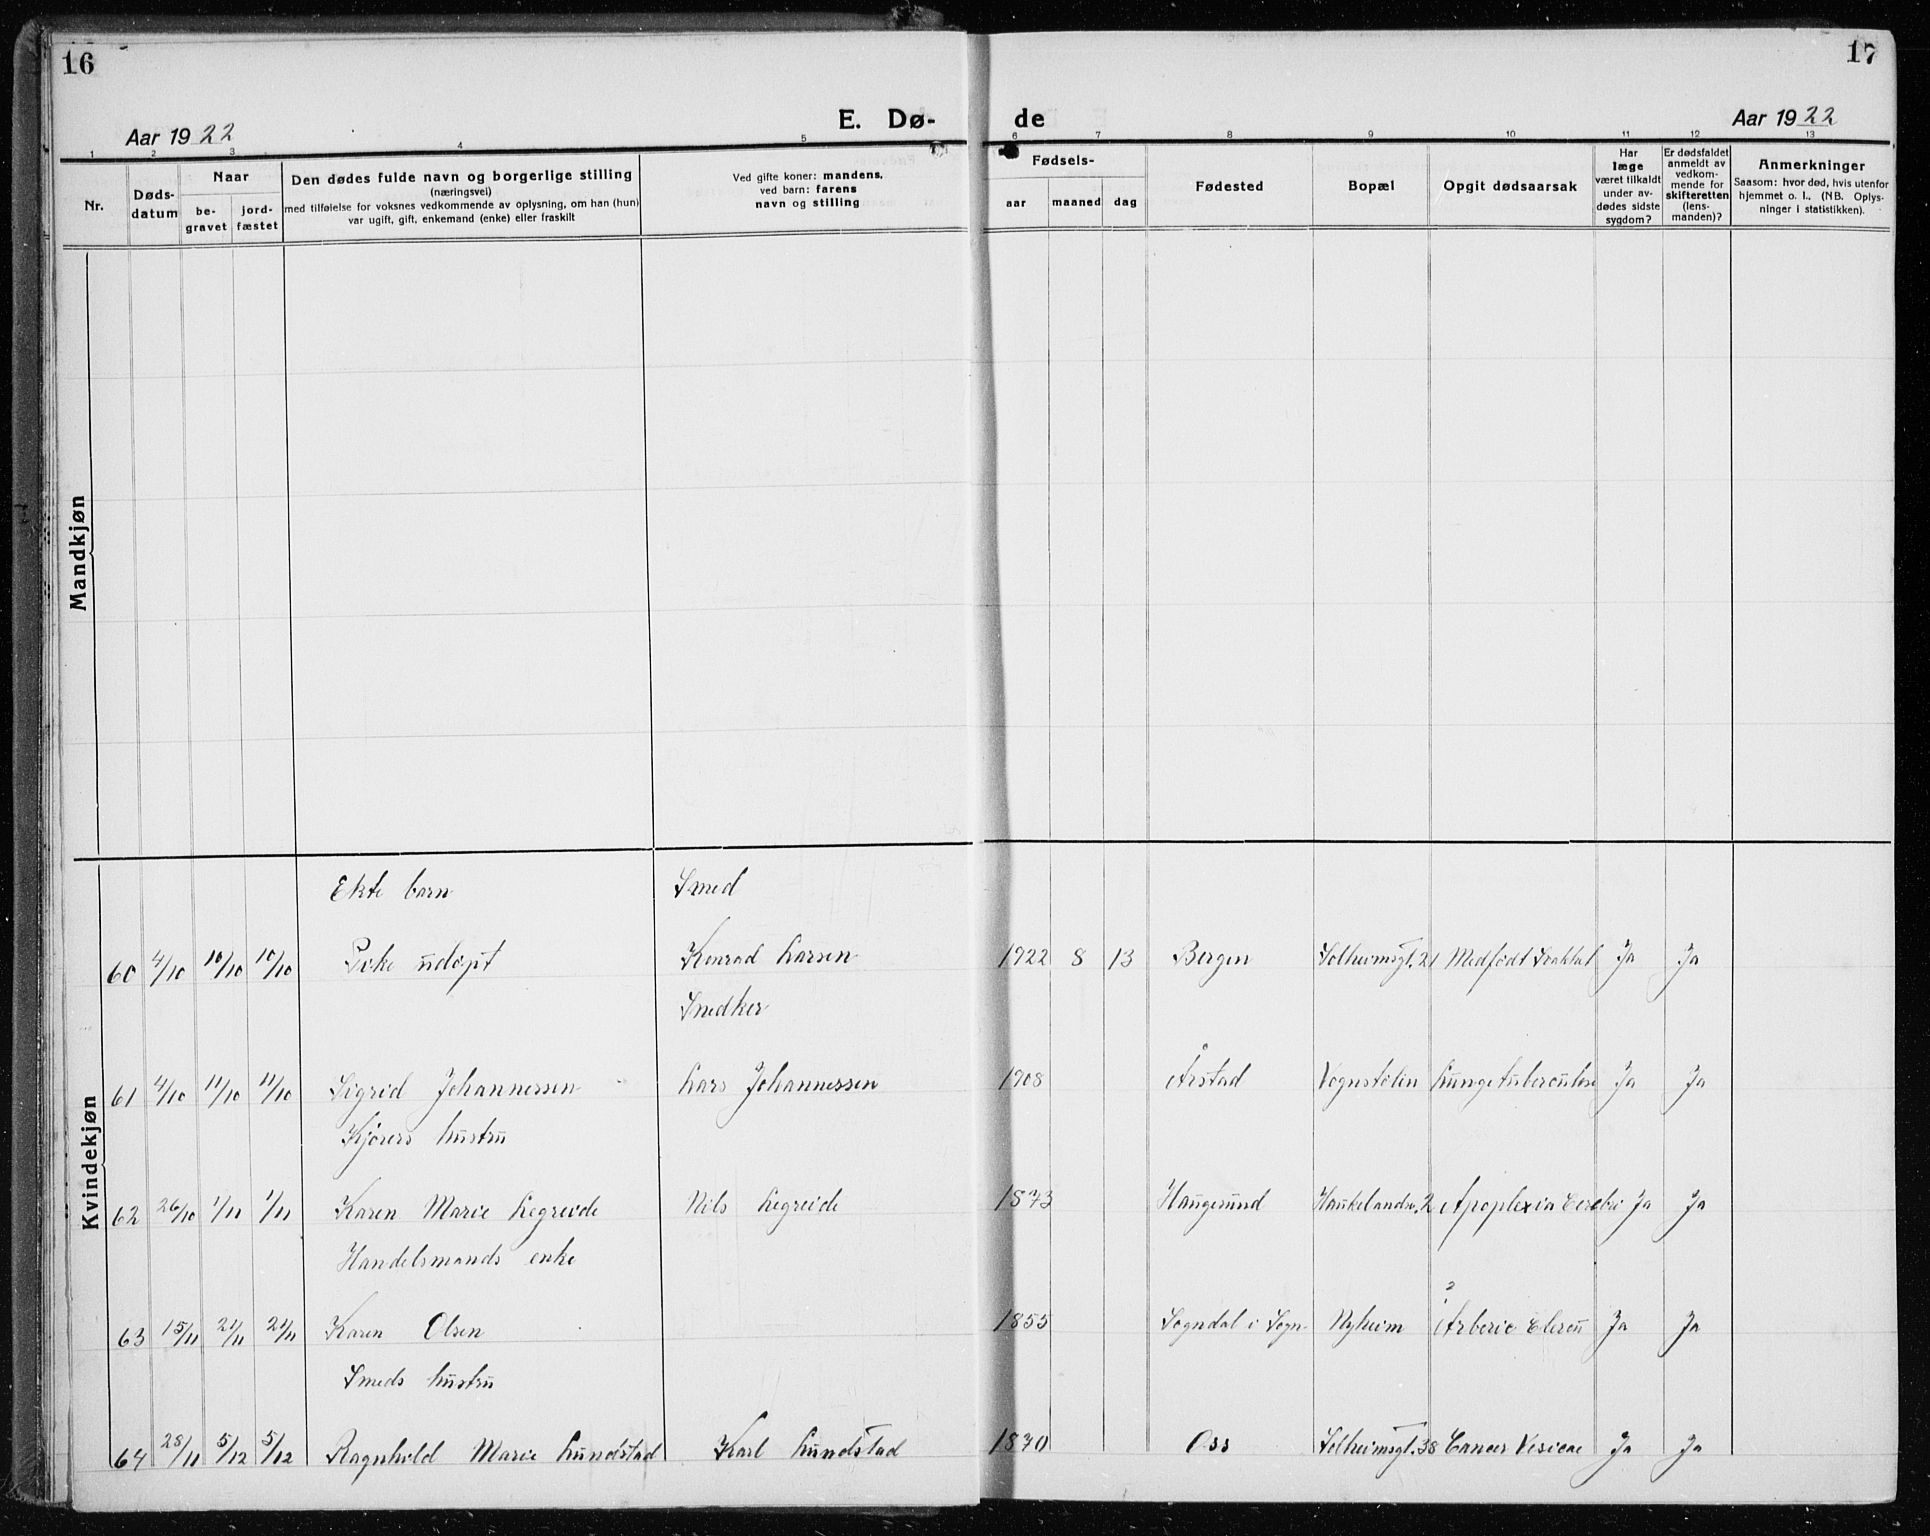 16
17
Aar 1922
E. Dø-
de
Aar 1922
1 2 3 4 5 6 7 8 9 10 11 12 13
Nr.
Døds-
datum
Naar
be-
gravet
jord-
fæstet
Den dødes fulde navn og borgerlige stilling
(næringsvei)
med tilføielse for voksnes vedkommende av oplysning, om han (hun)
var ugift, gift, enkemand (enke) eller fraskilt
Ved gifte koner: mandens,
ved barn: farens
navn og stilling
Fødsels-
aar maaned dag
Fødested
Bopæl
Opgit dødsaarsak
Har
læge
været tilkaldt
under av-
dødes sidste
sygdom?
Er dødsfaldet
anmeldt av
vedkom-
mende for
skifteretten
(lens-
manden)?
Anmerkninger
Saasom: hvor død, hvis utenfor
hjemmet o. l., (NB. Oplys-
ninger i statistikken).
Mandkjøn
Kvindekjøn
Ekte barn Smed
60 4/10 10/10 10/10 Pike udøpt Konrad Larsen 1922 8 13 Bergen Solheimsgt. 21 Medfødt Svakhet Ja Ja
Snedker
61 4/10 11/10 11/10 Sigrid Johannessen Lars Johannessen 1908 Årstad Vognstølen Lungetuberculose Ja Ja
Kjørers hustru
62 26/10 1/11 1/11 Karen Marie Legreide Nils Legreide 1873 Haugesund Haukelandsv. 2 Apoplexia Cerebri Ja Ja
Handelsmands enke
63 15/11 21/11 21/11 Karen Olsen 1855 Sogndal i Sogn Nyheim Ja Ja
Smeds hustru
64 28/11 5/12 5/12 Ragnhild Marie Lundstad Karl Lundstad 1870 Oss Solheimsgt. 38 Cancer Vesicae Ja Ja